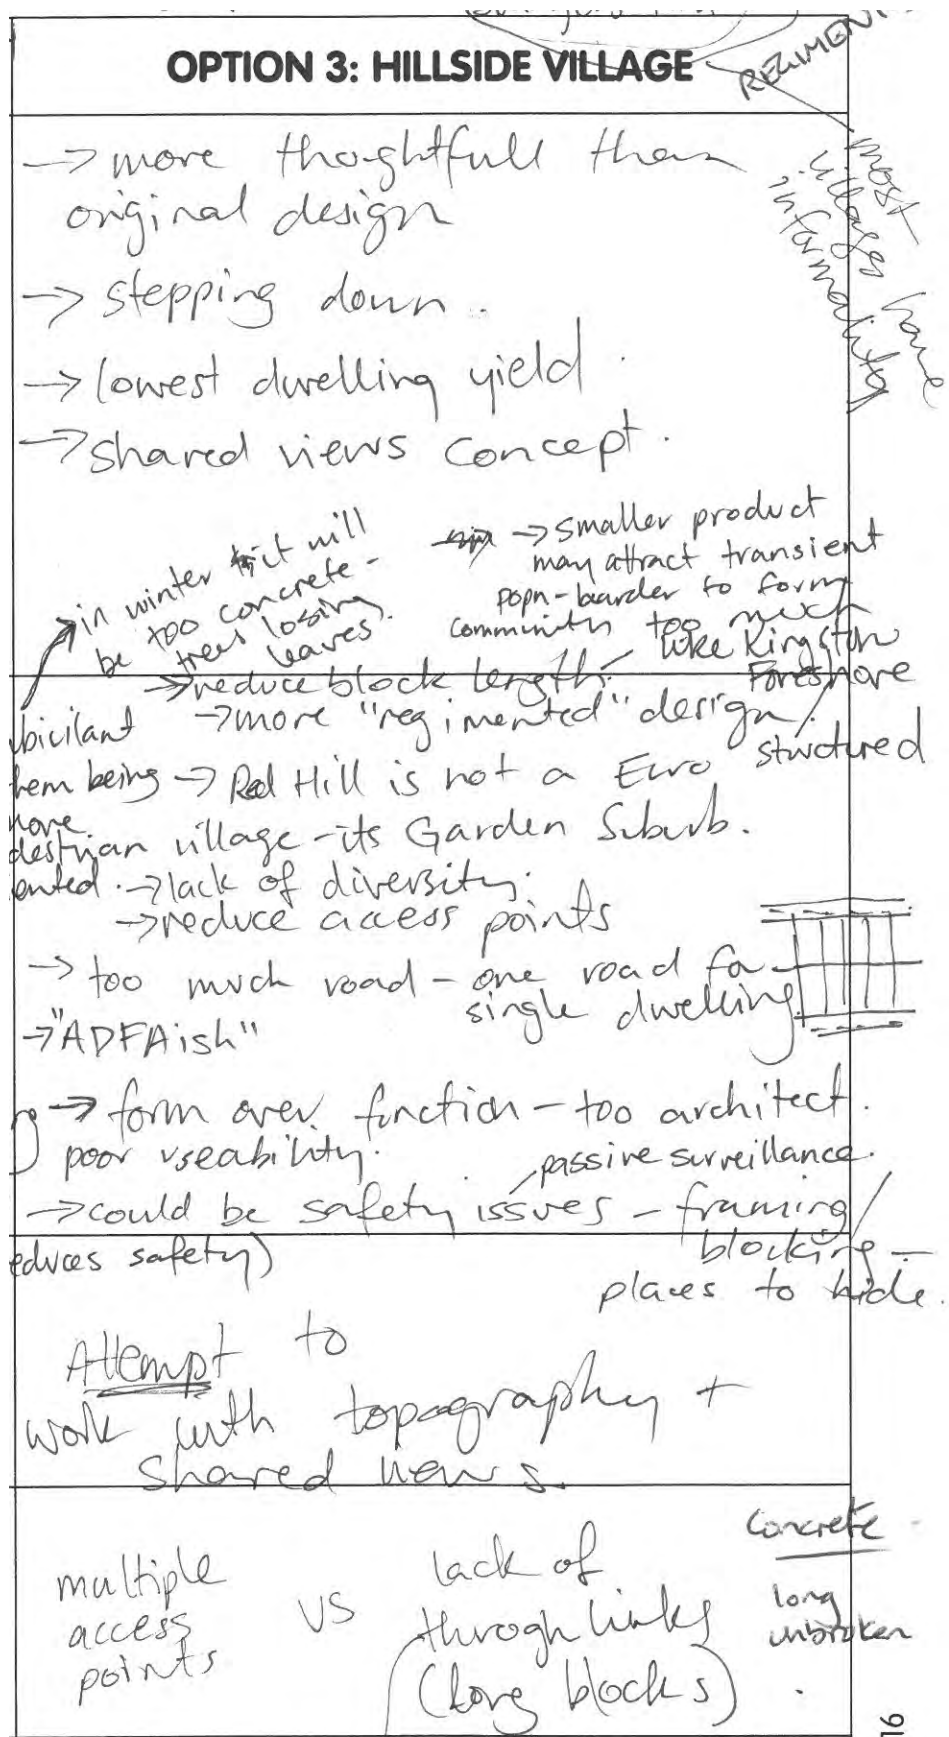 OPTION 3: HILLSIDE VILLAGE
REGIMENT
most
villages have
informality
→ more thoghtfull than
original design
→ stepping down.
→ lowest dwelling yield.
→ shared views concept.
→ smaller product
may attract transient
popn - harder to form
community too much
like Kingston
Foreshore
→ in winter it will
be too concrete -
trees losing
leaves.
→ reduce block length.
→ more "regimented" design / structured
→ Red Hill is not a Euro
village - its Garden Suburb.
→ lack of diversity.
→ reduce access points
→ too much road - one road for
single dwelling
→ "ADFAish"
→ form over function - too architect.
poor useability.
passive surveillance.
→ could be safety issues - framing/
blocking -
places to hide.
educes safety)
Attempt to
work with topography +
shared views.
multiple
access
points
VS
lack of
through links
(long blocks)
Concrete
long
unbroken
16